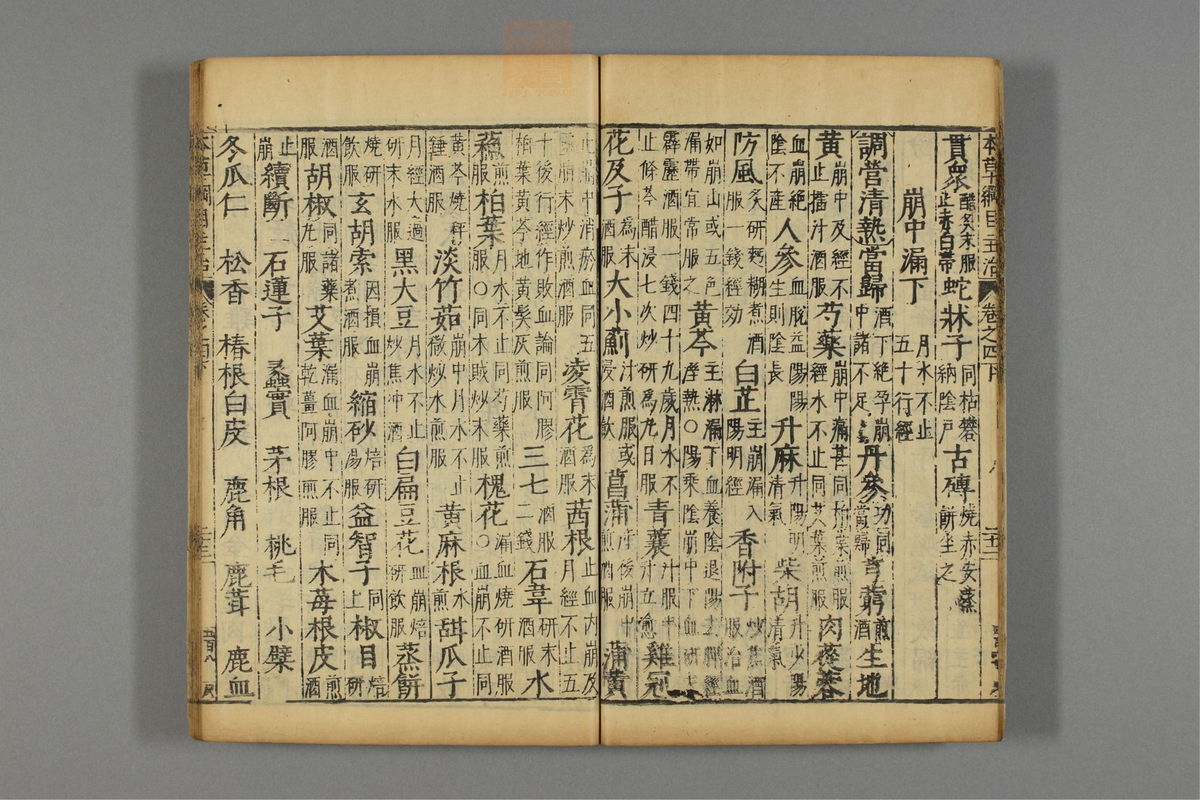 貫衆醋炙末服止赤白帶蛇牀子同枯礬納陰戶古磚燒赤安蒸餅坐之
崩中漏下月水不止五十行經
調營清熱當歸酒丁絶孕崩中諸不足丹參功同當歸芎藭煎酒生地
黃崩中及經不止擂汁酒服芍藥崩中痛甚同柏葉煎服經水不止同艾葉煎服肉蓯蓉
血崩絶陰不產人參血脫益陽陽生則陰長升麻升陽明清氣柴胡升少陽清氣
防風炙研麪糊煮酒服一錢經効白芷主崩漏入陽明經香附子炒焦酒服治血
如崩山或五色漏帶宜常服之黃芩主淋漏下血養陰退陽去脾經產熱○陽乘陰崩中下血研末
霹靂酒服一錢四十九歲月水不止條芩醋浸七次炒研爲丸日服青蘘汁服半升立愈雞冠
花及子爲末酒服大小薊汁煎服或浸酒飮菖蒲產後崩中煎酒服蒲黃
止崩中消瘀血同五靈脂末炒煎酒服凌霄花爲末酒服茜根止血内崩及月經不止五
十後行經作敗血論同阿膠柏葉黃芩地黃髮灰煎服三七酒服二錢石韋研末酒服水
蘇煎服柏葉月水不止同芍藥煎服○同木賊炒末服槐花漏血燒研酒服○血崩不止同
黃芩燒秤錘酒服淡竹茹崩中月水不止微炒水煎服黃麻根水煎甜瓜子
月經太過研末水服黑大豆月水不止炒焦冲酒白扁豆花血崩焙研飮服蒸餅
燒研飮服玄胡索因損血崩煮酒服縮砂焙研湯服益智子同上椒目焙研
酒服胡椒同諸藥丸服艾葉漏血崩中不止同乾薑阿膠煎服木莓根皮煎酒
止崩續斷 石蓮子 蠡實 茅根 桃毛 小檗
冬瓜仁 松香 椿根白皮 鹿角 鹿茸 鹿血